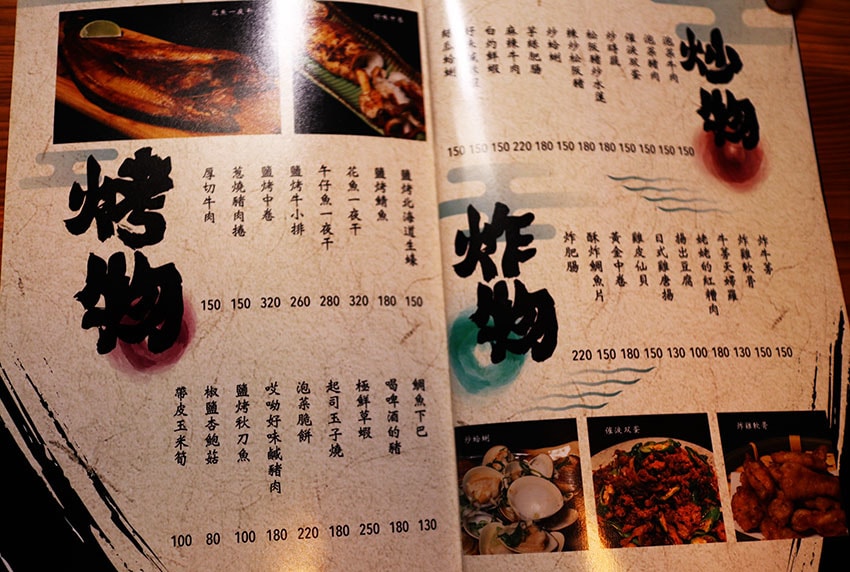 炒物
泡菜牛肉
泡菜豬肉
催淚双蛋
炒時蔬
松阪豬炒水蓮
辣炒松阪豬
炒蛤蜊
芋緣肥腸
麻辣牛肉
白灼鮮蝦
絲瓜蛤蜊
150 150 150 220 180 150 180 180 150 150 150 150
炸物
炸牛蒡
炸雞軟骨
牛蒡天婦羅
姥姥的紅糟肉
揚出豆腐
日式雞唐揚
雞皮仙貝
黃金中卷
酥炸鯛魚片
炸肥腸
220 150 180 150 130 100 180 130 150 150
炒蛤蜊
催淚双蛋
炸雞軟骨
花魚一夜干
烤物
鹽烤北海道生蠔
鹽烤鯖魚
花魚一夜干
午仔魚一夜干
鹽烤牛小排
鹽烤中卷
蔥燒豬肉捲
厚切牛肉
150 150 320 260 280 320 180 150
鯛魚下巴
喝啤酒的豬
極鮮草蝦
起司玉子燒
泡菜脆餅
哎呦好味鹹豬肉
鹽烤秋刀魚
椒鹽杏鮑菇
帶皮玉米筍
100 80 100 180 220 180 250 180 130